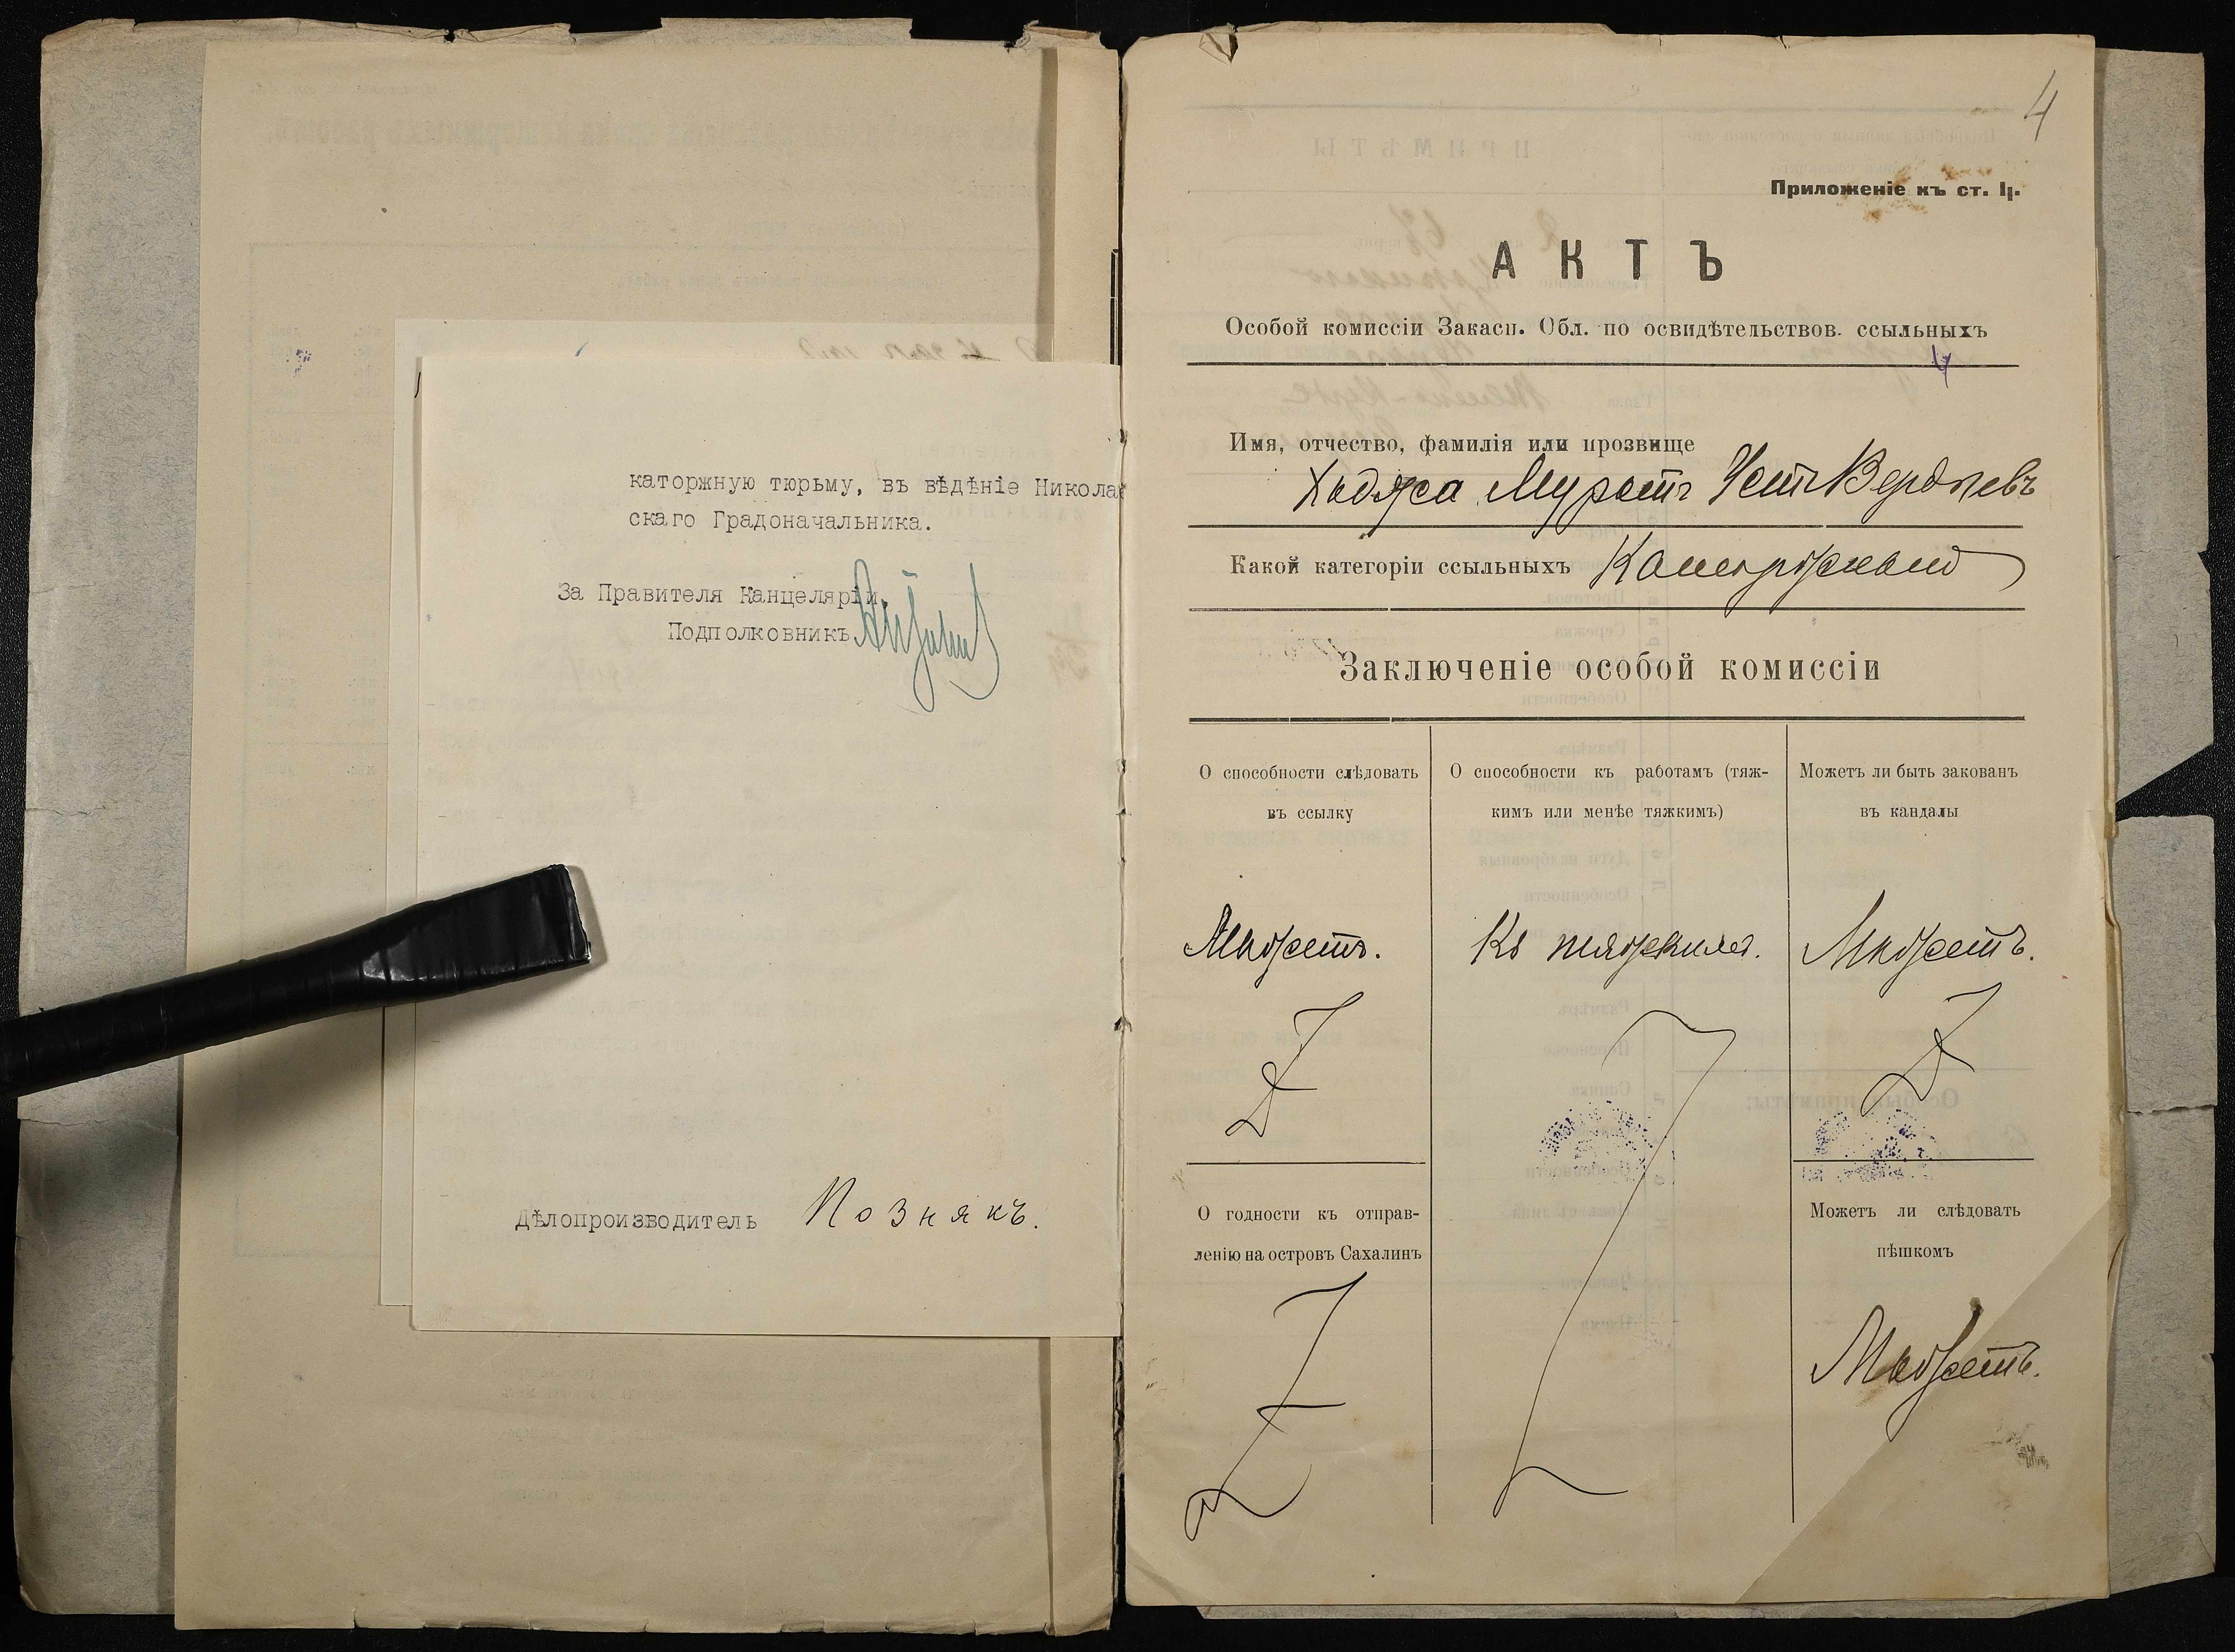 каторжную тюрьму, въ вѣдѣніе Никола
скаго Градоначальника.
За Правителя Канцеляріи,
Подполковникъ
Дѣлопроизводитель Познякъ.
4
Приложеніе къ ст. 4.
АКТЪ
Особой комиссіи Закасп. Обл. по освидѣтельствов. ссыльныхъ
4
Имя, отчество, фамилія или прозвище
Ходжа Муратъ
Какой категоріи ссыльныхъ Каторжный
Заключеніе особой комиссіи
О способности слѣдовать
въ ссылку
О способности къ работамъ (тяж-
кимъ или менѣе тяжкимъ)
Можетъ ли быть закованъ
въ кандалы
Можетъ.
Къ тяжкимъ.
Можетъ.
О годности къ отправ-
ленію на островъ Сахалинъ
Можетъ ли слѣдовать
пѣшкомъ
Можетъ.